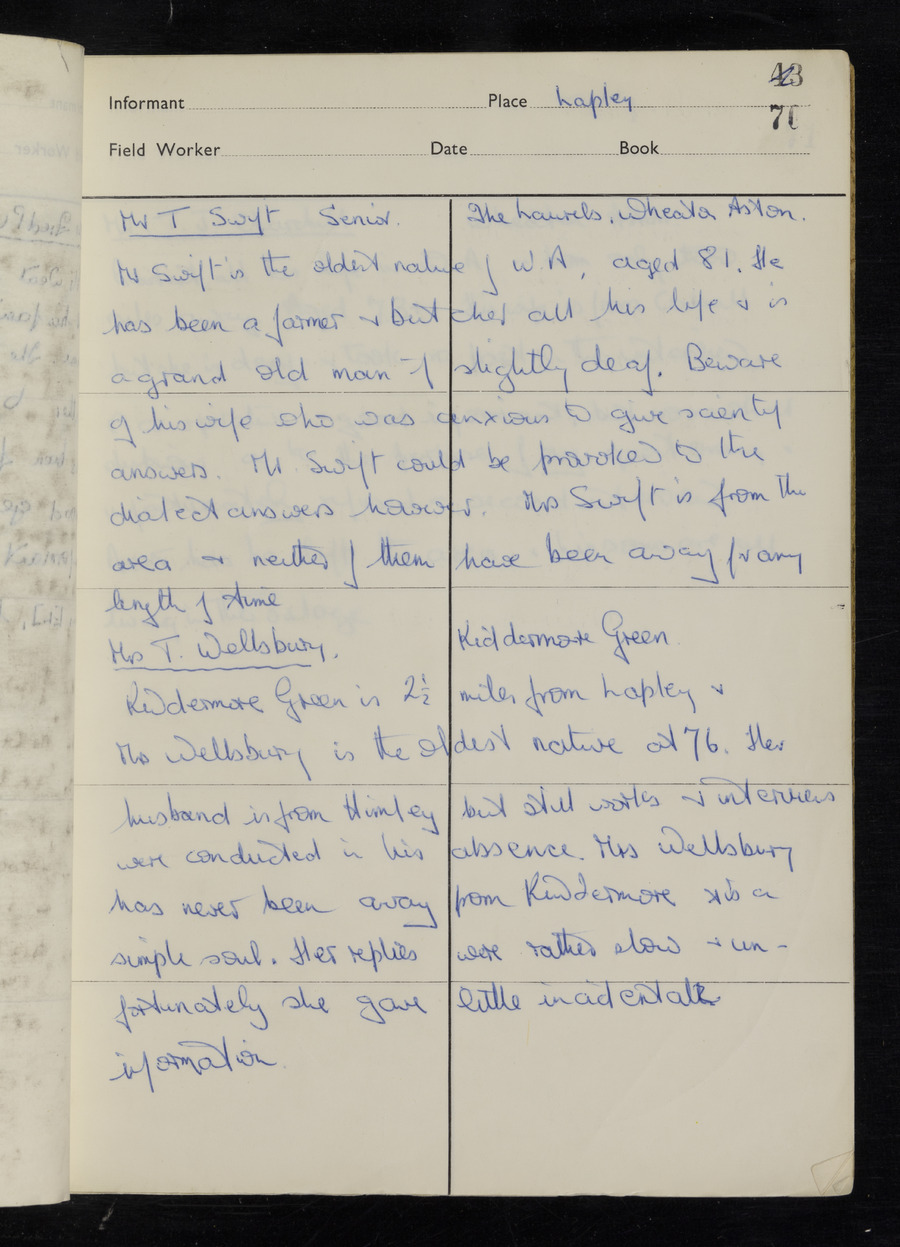 43
Informant Place Lapley
71
Field Worker Date Book
Mr T Swift Senior. The Laurels, Wheaton Aston.
Mr Swift is the oldest native of W.A, aged 81. He
has been a farmer & butcher all his life & is
a grand old man - if slightly deaf. Beware
of his wife who was anxious to give scienty
answers. Mr Swift could be provoked to the
dialect answers however. Mrs Swift is from the
area & neither of them have been away for any
length of time
Mrs T. Wellsbury. Kiddermore Green
Kiddermore Green is 2½ miles from Lapley &
Mrs Wellsbury is the oldest native at 76. Her
husband is from Himley but still works & interviews
were conducted in his absence. Mrs Wellsbury
has never been away from Kiddermore & is a
simple soul. Her replies were rather slow & un-
fortunately she gave little incidental
information.